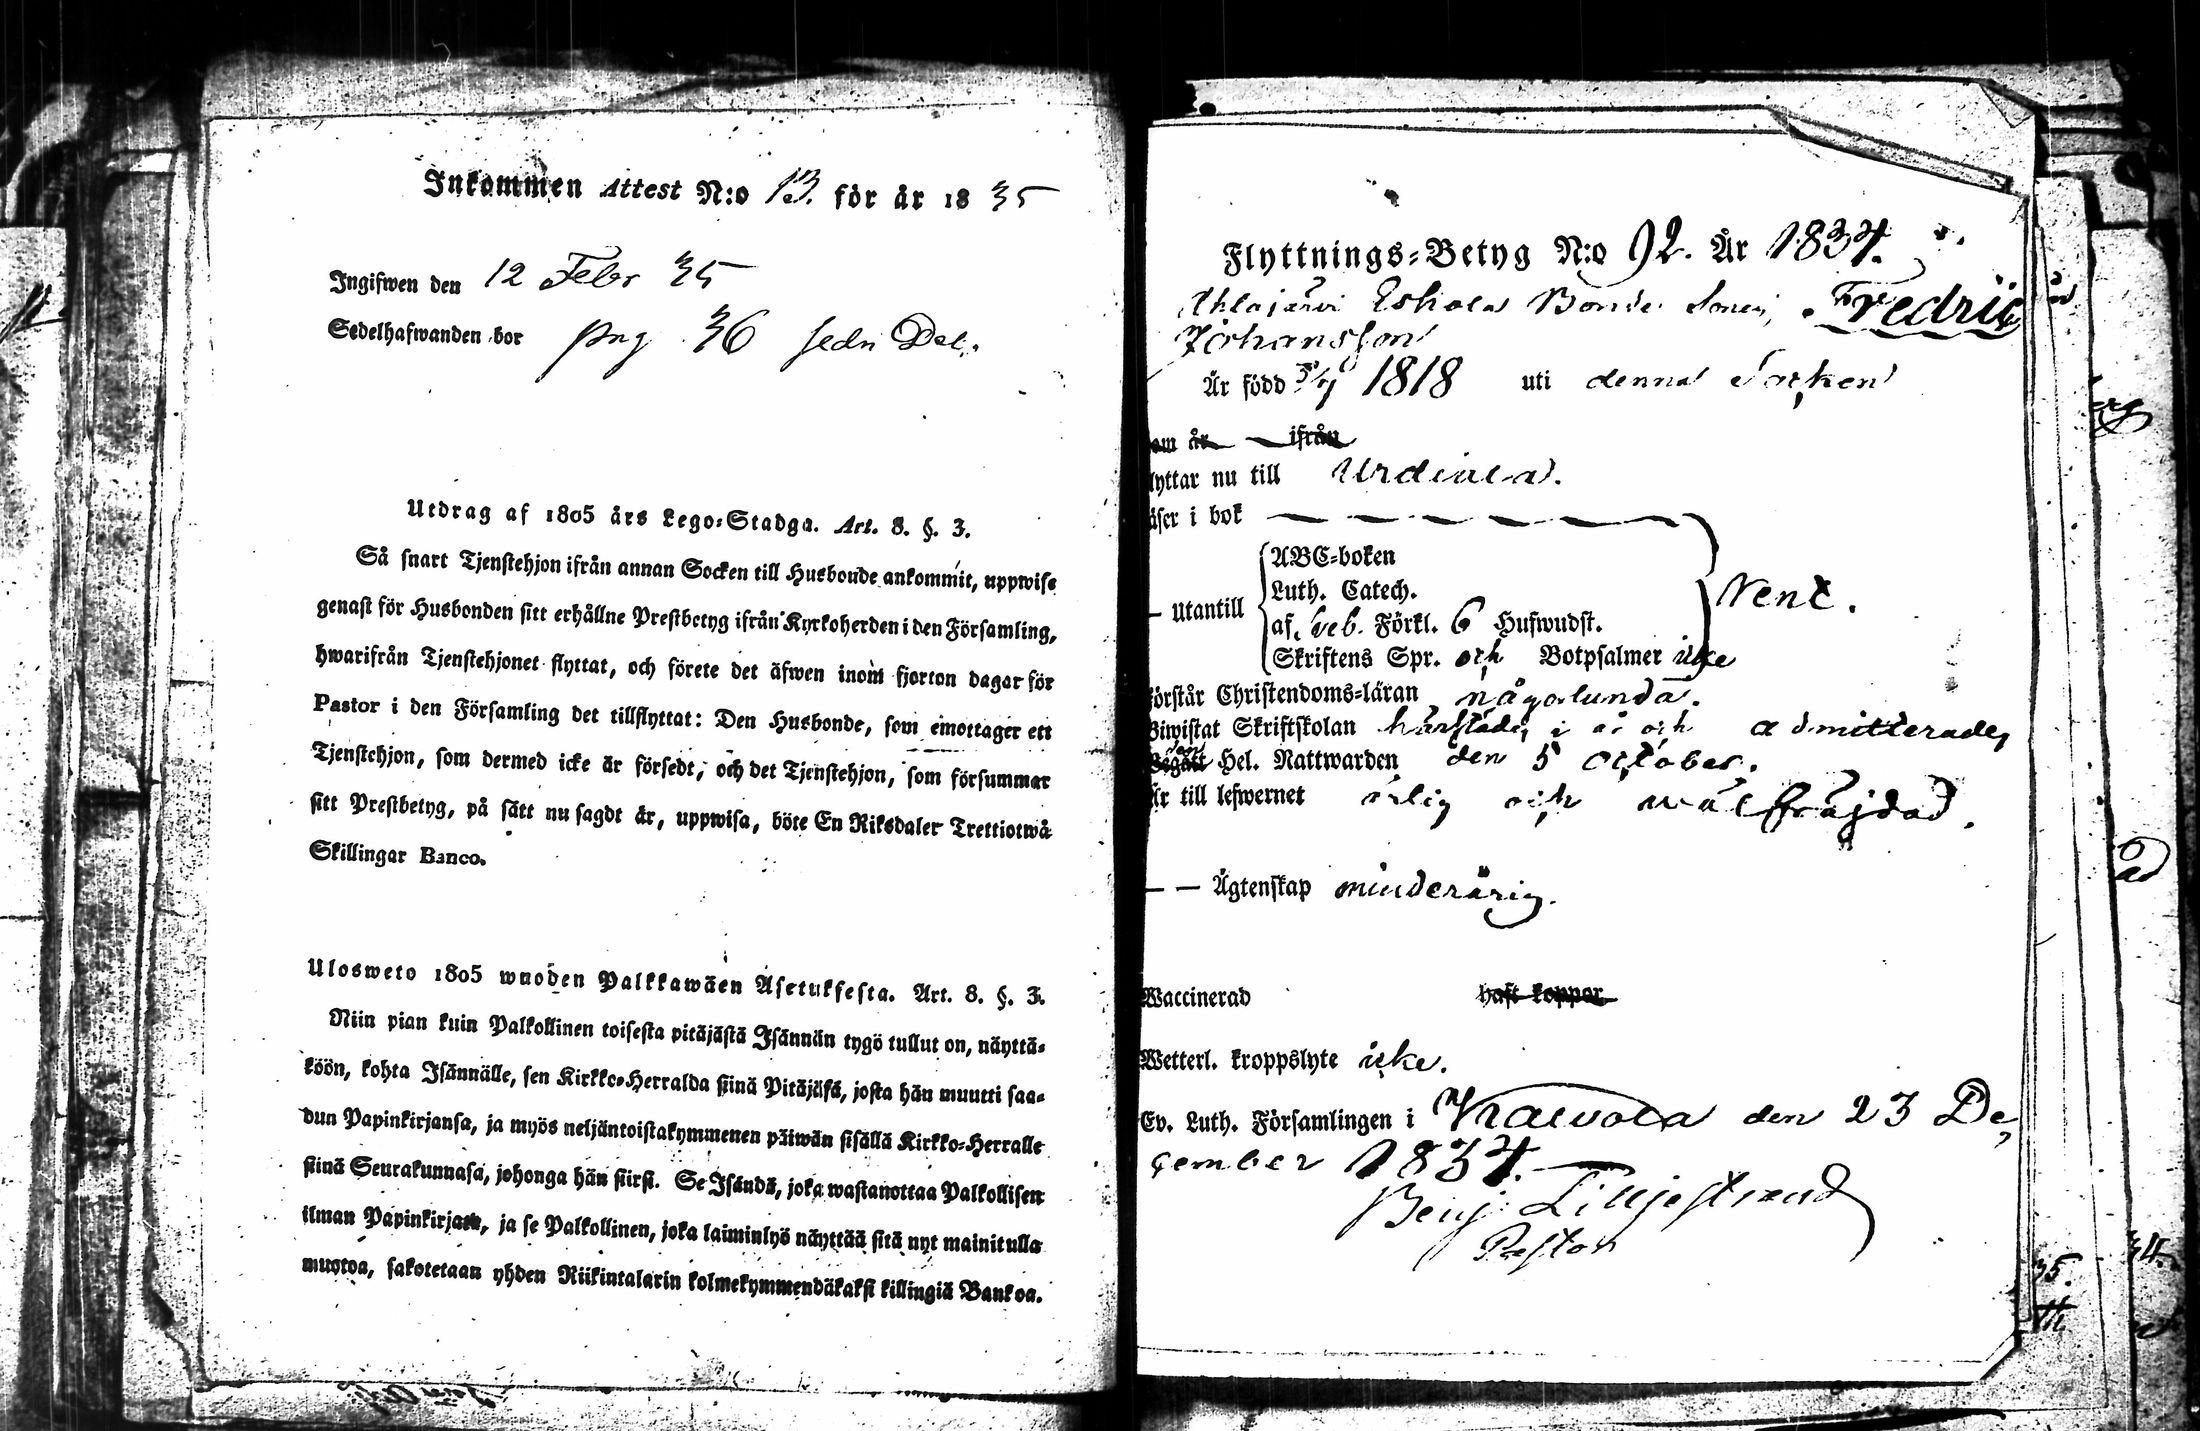 Inkommen Attest N:o 13. för år 1835
Ingifwen den 12 Febr 35
Sedelhafwanden bor pag 36 sedn Del.
Utdrag af 1805 års Lego-Stadga. Art. 8. §. 3.
Så snart Tjenstehjon ifrån annan Socken till Husbonde ankommit, uppwise
genast för Husbonden sitt erhållne Prestbetyg ifrån Kyrkoherden i den Församling,
hwarifrån Tjenstehjonet flyttat, och förete det äfwen inom fjorton dagar för
Pastor i den Församling det tillflyttat: Den Husbonde, som emottager ett
Tjenstehjon, som dermed icke är försedt, och det Tjenstehjon, som försummar
sitt Prestbetyg, på sätt nu sagdt är, uppwisa, böte En Riksdaler Trettiotwå
Skillingar Banco.
Ulosweto 1805 wuoden Palkkawäen Asetuksesta. Art. 8. §. 3.
Niin pian kuin Palkollinen toisesta pitäjästä Isännän tygö tullut on, näyttä-
köön, kohta Isännälle, sen Kirkko-Herralda siinä Pitäjäsä, josta hän muutti saa-
dun Papinkirjansa, ja myös neljäntoistakymmenen päiwän sisällä Kirkko-Herralle
siinä Seurakunnasa, johonga hän siirsi. Se Isändä, joka wastanottaa Palkollisen
ilman Papinkirjata, ja se Palkollinen, joka laiminlyö näyttää sitä nyt mainitulla
muotoa, sakotetaan yhden Riikintalarin kolmekymmendäkaksi killingiä Bankoa.
Flyttnings-Betyg N:o 92. År 1834.
Ahlajärvi Eskola Bonde Sonen, Fredric
Johansson
Är född 3/7 1818 uti denna Socken
om är ifrån
lyttar nu till Urdiala.
äser i bok
— Utantill
ABC-boken
Luth. Catech.
af Sveb. Förkl. 6 Hufwudst.
Skriftens Spr. och Botpsalmer icke
Nent.
örstår Christendoms-läran någorlunda.
Biwistat Skriftskolan härstädes i år och admitterades
Begått Hel. Nattwarden den 5 October.
Är till lefwernet ärlig och wälfräjdad.
— — Ägtenskap minderårig.
Waccinerad haft koppor
Wetterl. kroppslyte icke.
Ev. Luth. Församlingen i Kalvola den 23 De-
cember 1834.
Benj. Lilljestrand
Pastor